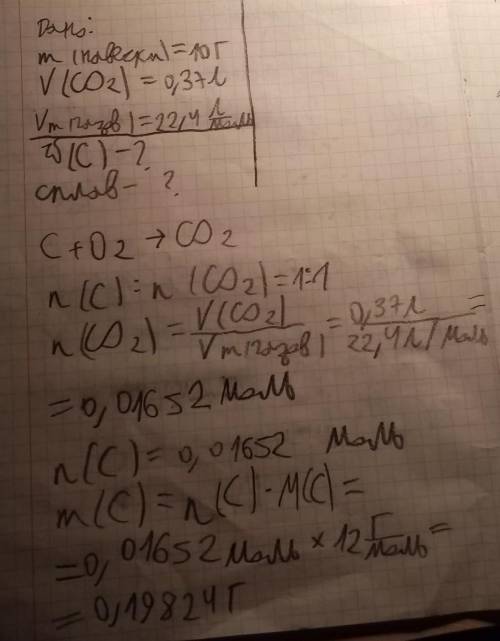 Дано:
m (навески) = 10 г
V(CO2) = 0,37 л
Vm (газов) = 22,4 л/моль
ω(C) - ?
сплав - ?
C + O2 → CO2
n(C) : n (CO2) = 1:1
n(CO2) = V(CO2) / Vm(газов) = 0,37 л / 22,4 л/моль =
= 0,01652 моль
n(C) = 0,01652 моль
m(C) = n(C) · M(C) =
= 0,01652 моль × 12 г/моль =
= 0,19824 г